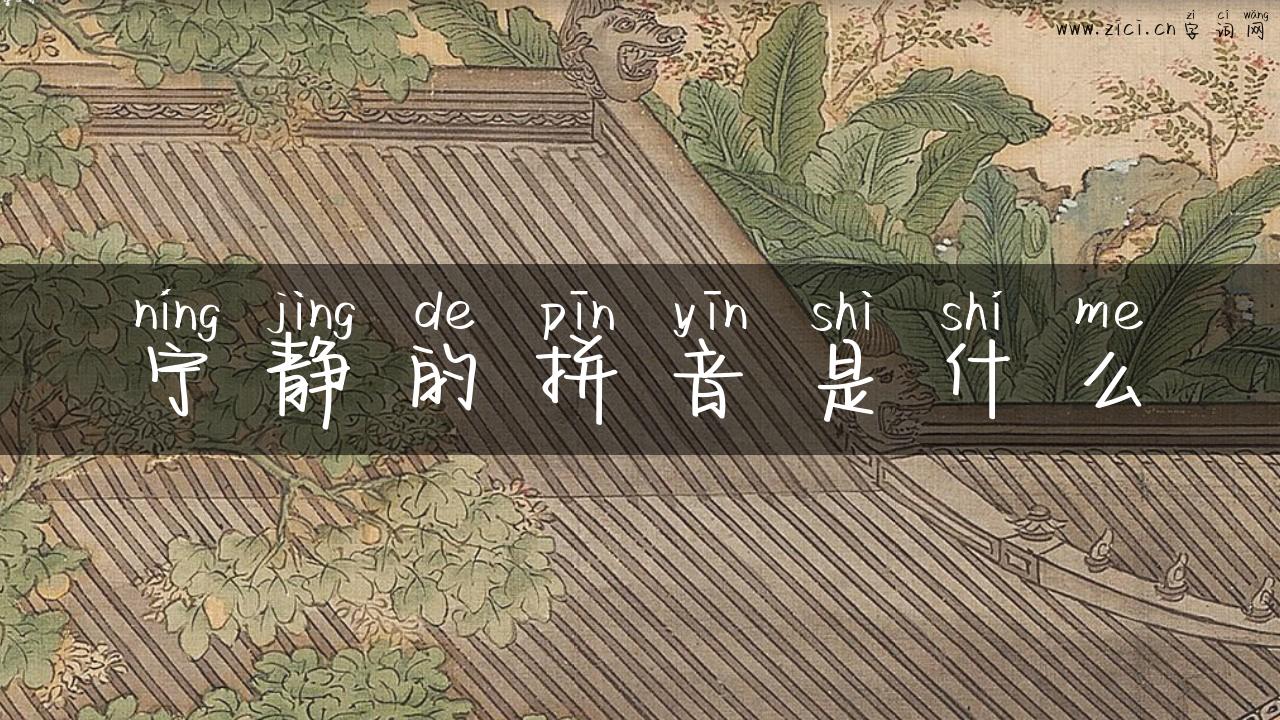 zì cí wǎng
www.zici.cn 字词网
níng jìng de pīn yīn shì shí me
宁静的拼音是什么